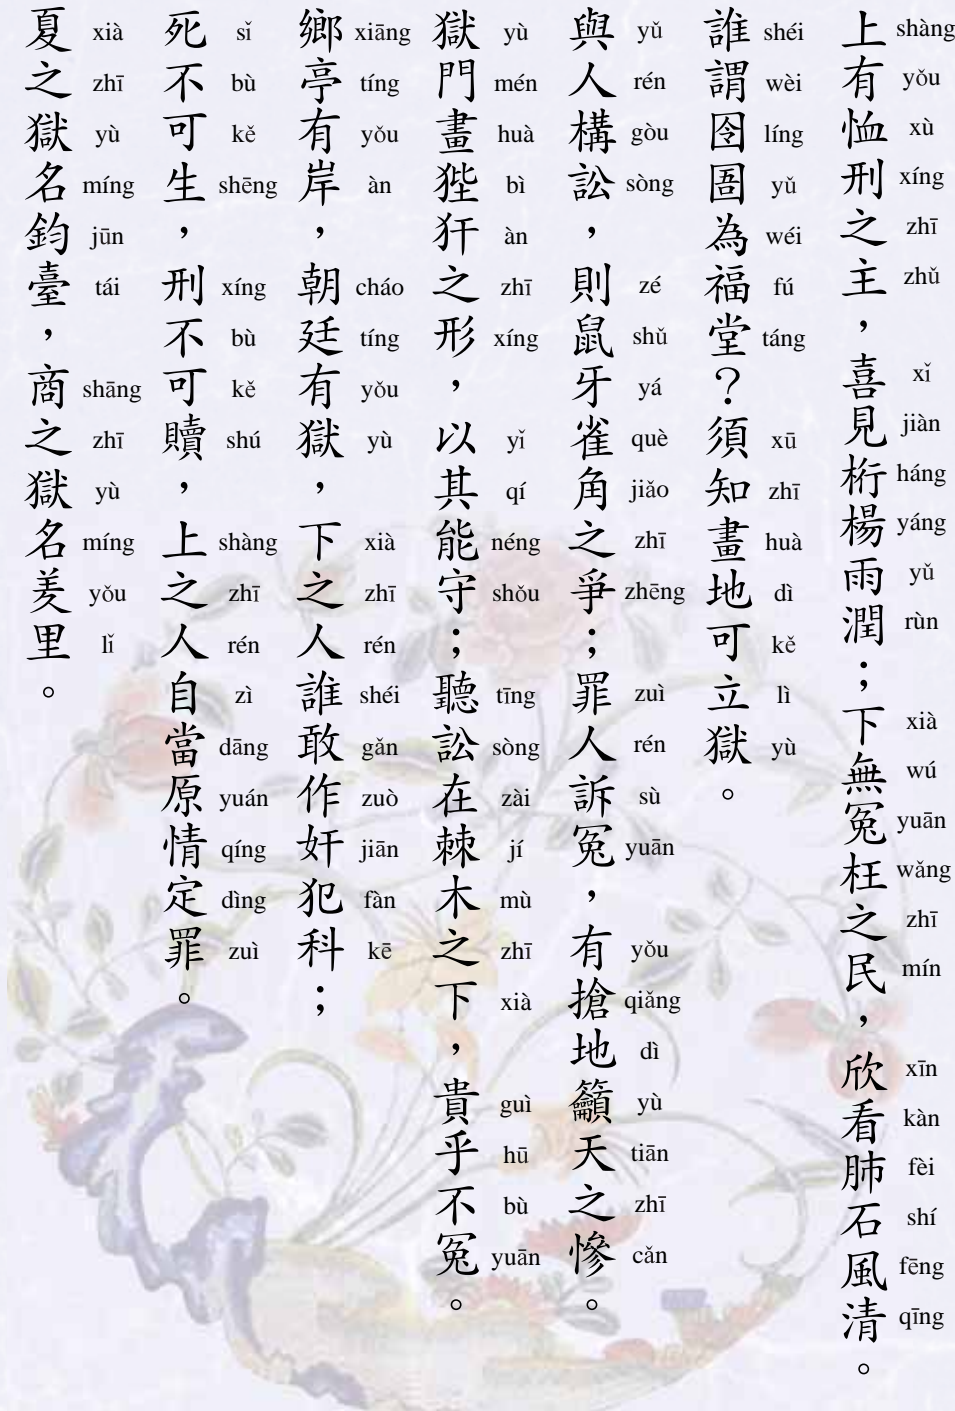 上有恤刑之主，喜見桁楊雨潤；下無冤枉之民，欣看肺石風清。
shàng yǒu xù xíng zhī zhǔ xǐ jiàn háng yáng yǔ rùn xià wú yuān wǎng zhī mín xīn kàn fèi shí fēng qīng
誰謂囹圄為福堂？須知畫地可立獄。
shéi wèi líng yǔ wéi fú táng xū zhī huà dì kě lì yù
與人構訟，則鼠牙雀角之爭；罪人訴冤，有搶地籲天之慘。
yǔ rén gòu sòng zé shǔ yá què jiǎo zhī zhēng zuì rén sù yuān yǒu qiǎng dì yù tiān zhī cǎn
獄門畫狴犴之形，以其能守；聽訟在棘木之下，貴乎不冤。
yù mén huà bì àn zhī xíng yǐ qí néng shǒu tīng sòng zài jí mù zhī xià guì hū bù yuān
鄉亭有岸，朝廷有獄，下之人誰敢作奸犯科；
xiāng tíng yǒu àn cháo tíng yǒu yù xià zhī rén shéi gǎn zuò jiān fàn kē
死不可生，刑不可贖，上之人自當原情定罪。
sǐ bù kě shēng xíng bù kě shú shàng zhī rén zì dāng yuán qíng dìng zuì
夏之獄名鈞臺，商之獄名羑里。
xià zhī yù míng jūn tái shāng zhī yù míng yǒu lǐ